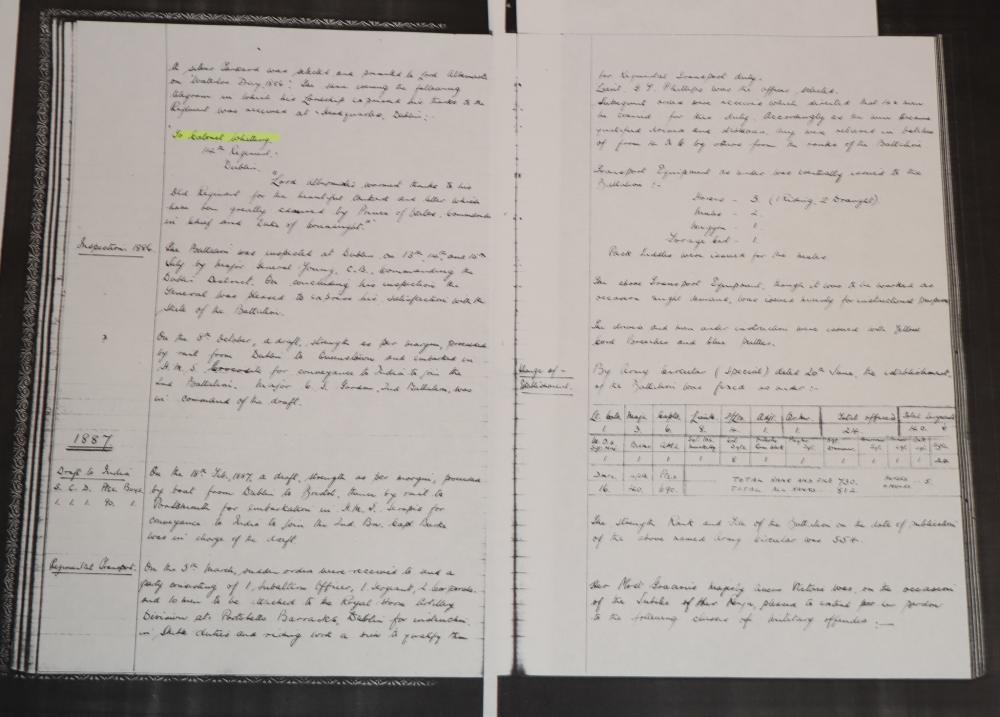 A silver Tankard was selected and presented to Lord Albemarle
on "Waterloo Day, 1886". The same evening the following
telegram in which his Lordship expressed his thanks to the
Regiment was received at Headquarters, Dublin:-
"To Colonel Whitting.
14th Regiment.-
Dublin.
"Lord Albemarle's warmest thanks to his
Old Regiment for the beautiful Tankard and letter which
have been greatly admired by Prince of Wales, Commander
in Chief and Duke of Connaught."
Inspection. 1886.
The Battalion was inspected at Dublin on 13th, 14th and 15th
July by Major General Young, C.B., commanding the
Dublin District. On concluding his inspection the
General was pleased to express his satisfaction with the
State of the Battalion.
On the 5th October, a draft, strength as per margin, proceeded
by rail from Dublin to Queenstown and embarked in
H.M.S. Crocodile for conveyance to India to join the
2nd Battalion. Major C.S. Gordon, 2nd Battalion, was
in command of the draft.
1887
Draft to India
S. C. D. Ptes Boys
1. 1. 1. 90. 1.
On the 18th Feb. 1887, a draft, strength as per margin, proceeded
by boat from Dublin to Bristol, thence by rail to
Portsmouth for embarkation in H.M.S. Serapis for
conveyance to India to join the 2nd Bn. Capt
was in charge of the draft.
Regimental Transport.
On the 3rd March, orders were received to send a
party consisting of 1 Subaltern Officer, 1 Sergeant, 2 Corporals
and 10 men to be attached to the Royal Horse Artillery
Division at Portobello Barracks, Dublin for instruction
in Stable duties and riding with a view to qualify them
for Regimental Transport duty.
Lieut. Phillips was the officer selected.
Subsequent orders were received which directed that men
be trained for this duty. Accordingly as the men became
qualified they were relieved in batches
of from 4 to 6 by others from the ranks of the Battalion
Transport Equipment as under was eventually issued to the
Battalion :-
Horses - 3. (1 Riding, 2 Draught)
Mules - 2.
Waggon - 1.
Forage Cart - 1.
Pack Saddles were issued for the mules.
The above Transport Equipment, though it was to be worked as
occasion might demand, was issued merely for instructional purposes
The drivers and men under instruction were issued with Yellow
cord Breeches and blue Putties.
Change of -
Establishment.
By Army Circular (Special) dated 20th June, the establishment
of the Battalion was fixed as under :-
Lt. Cols Majs. Capts. Lieuts. 2/Lts. Adjt. Qr. Mr. Total officers Total Sergeants
1 3. 6. 8. 4. 1. 1. 24. 40.
TOTAL RANK AND FILE 730.
16. 40. 690. TOTAL ALL RANKS 812
The strength Rank and File of the Battalion on the date of publication
of the above named Army Circular was 554.
Her Most Gracious Majesty Queen Victoria was, on the occasion
of the Jubilee of Her Reign, pleased to extend pardon
to the following classes of military offenders :-